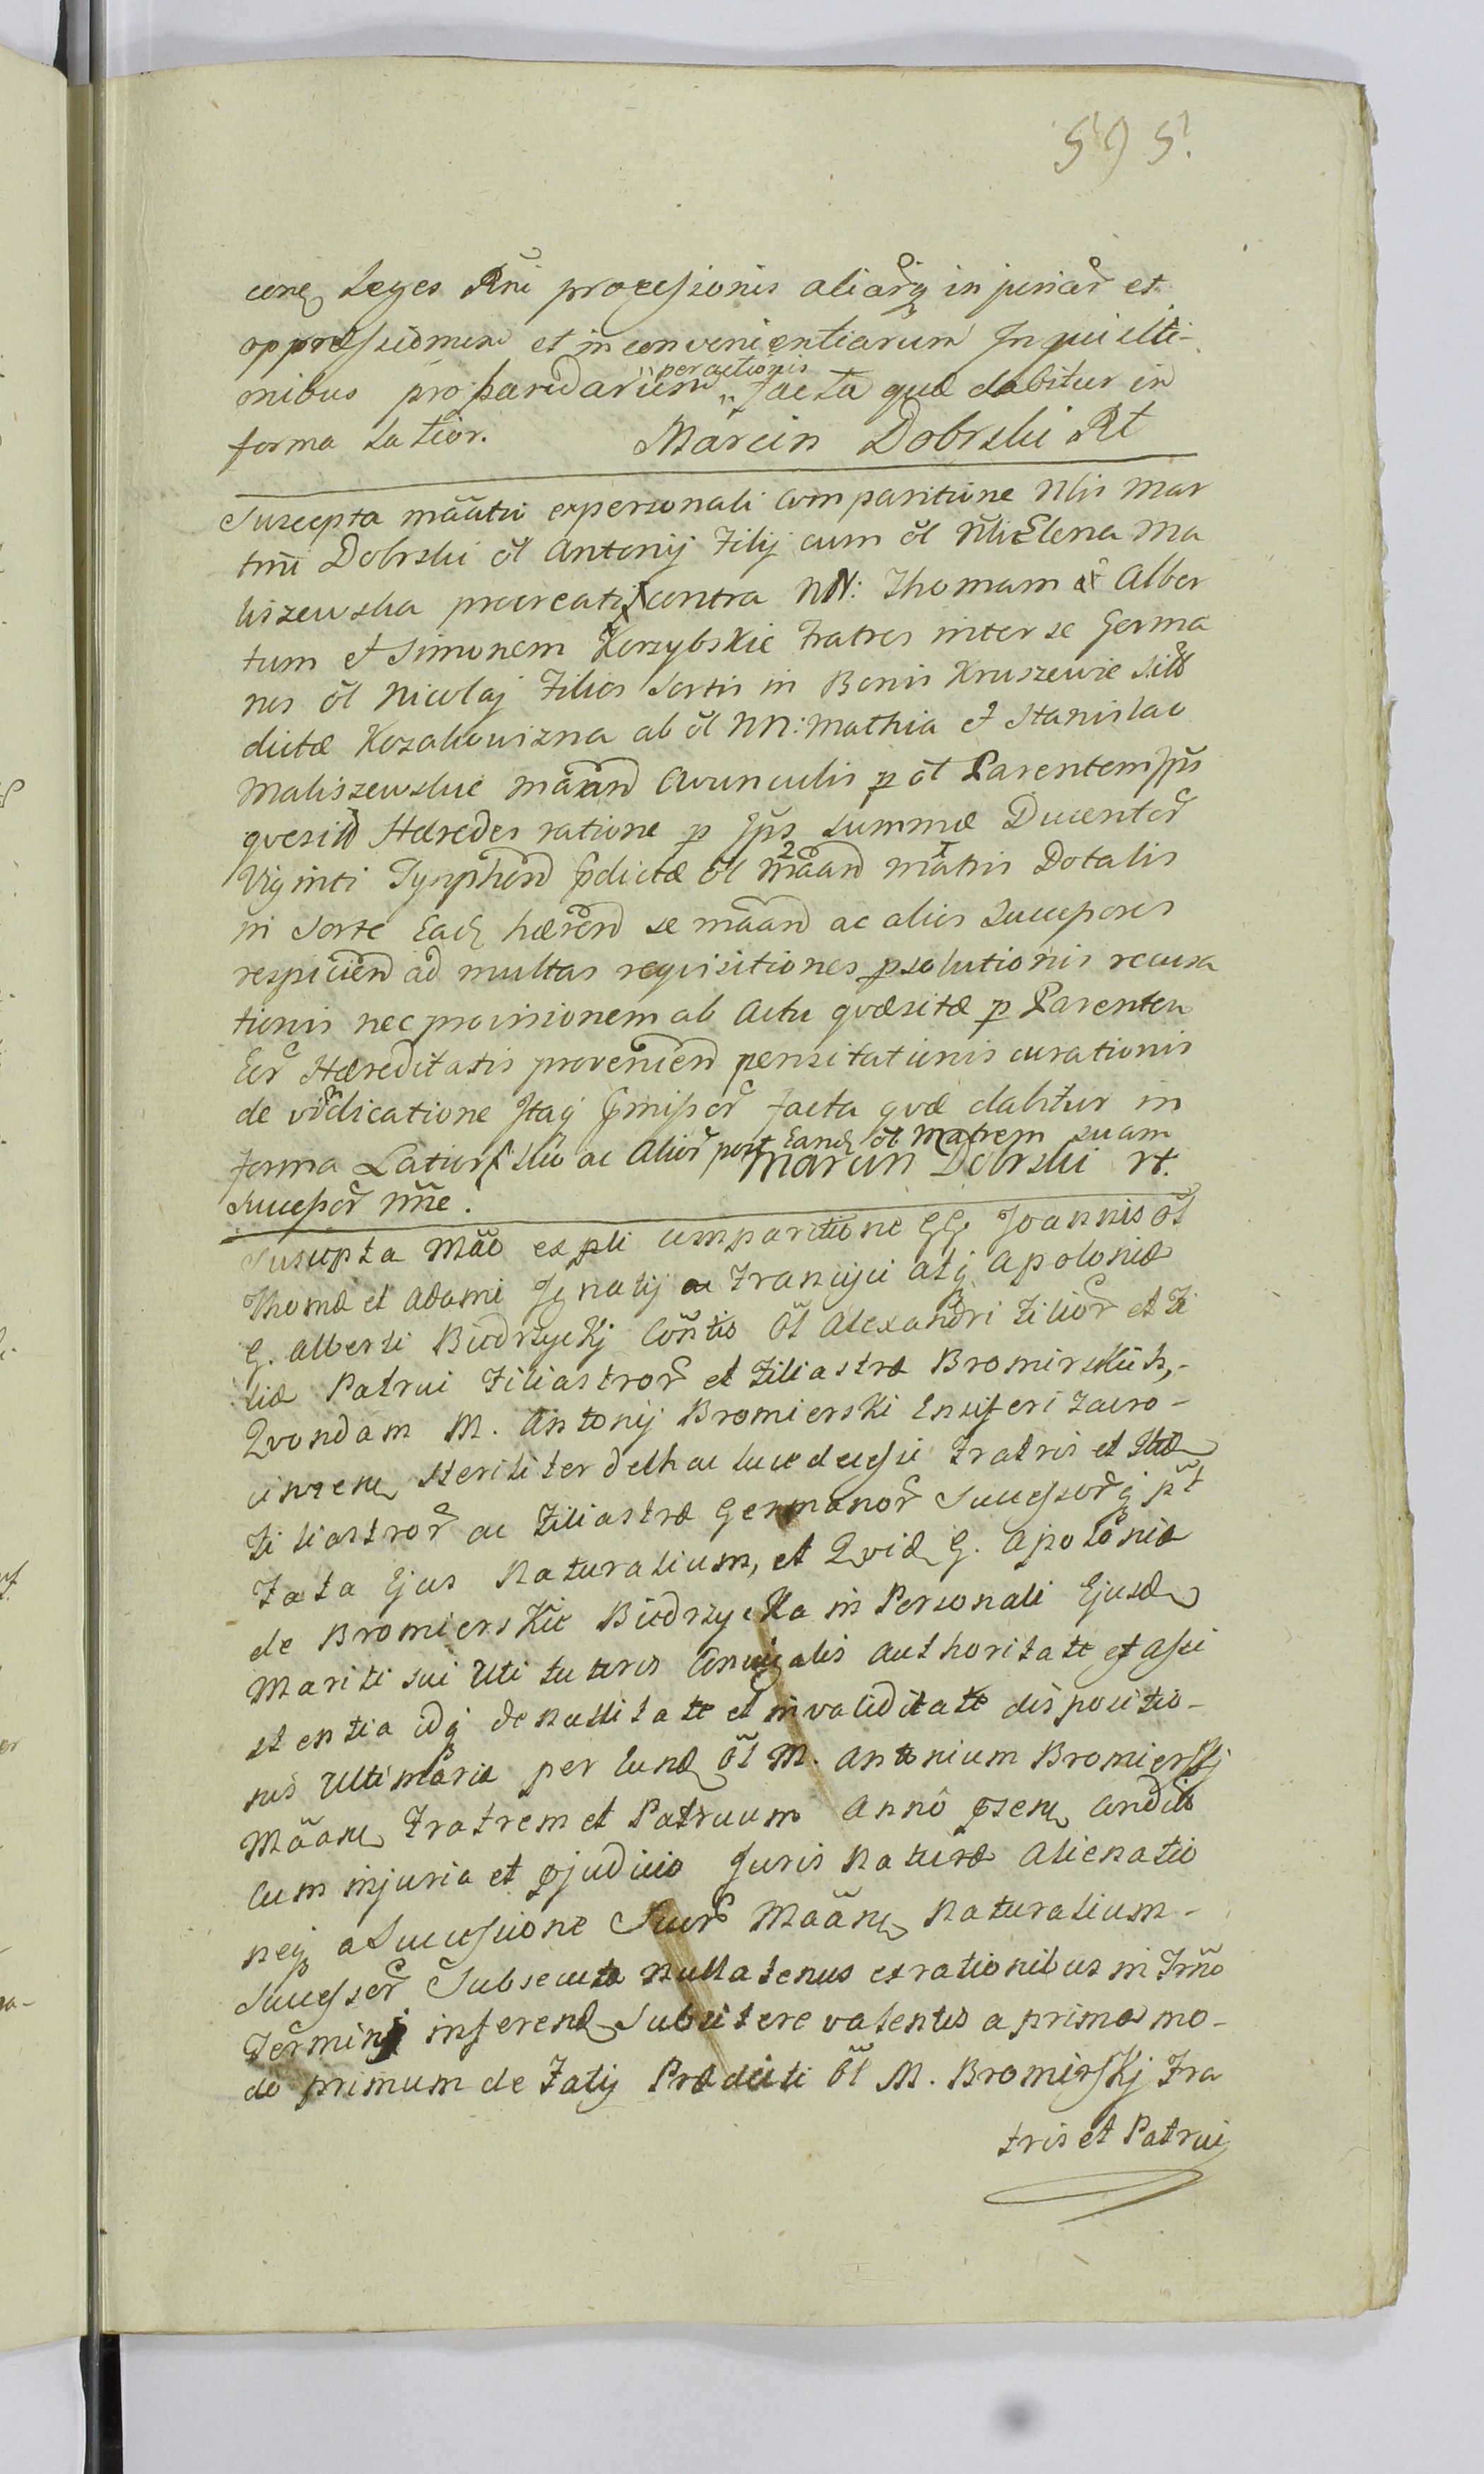 595.
Leges Rni processionis aliarq injuriar et
oppressionum et inconvenientiarum Inquisiti-
onibus probandarum „peractionis„ facta quæ dabitur in
forma Latior. Marcin Dobrski Rt
Suscepta mãatio ex personali Comparitione Nlis Mar
tini Dobrski õl Antonij Filij cum õl Nli Elena Ma
liszewska procreati contra NN: Thomam et Alber
tum et Simonem Korzybskie Fratres inter se Germa
nos õl Nicolaj Filios Sortis in Bonis Kruszewie
dictæ Kozakowizna ab õl NN: Mathia et Stanislao
Maliszewskie mãan Avunculis p õl Parentem Ips
qvesit Hæredes ratione p Ips Summæ Ducentor
Viginti Tynphon pdictæ õl mãan matris Dotalis
in Sorte Ead hæren se mãan ac alios Successores
respicien ad multas reqvisitiones psolutionis recusa
tionis nec provisionem ab Actu qvæsitæ p Parentem
Eor Hæreditatis provenien pensitationis curationis
de vindicatione Itaq pmissor facta qvæ dabitur in
forma Latior ac Alior post Eand õl Matrem suam
Marcin Dobrski rt.
Successor nne.
Suscepta Mão ex pli comparitione GG. Joannis õl
Thomæ et Adami Ignatij ac Francisci atq Apoloniæ
G. Alberti Biedrzyckj Consortis Õl Alexandri Filior et Fi
liæ Patrui Filiastror et Filiastræ Bromirskich,-
Qvondam M. Antonij Bromierski Ensiferi Zacro-
cimren steriliter de hac luce decessi Fratris et
Filiastror ac Filiastræ Germanor Successorq pt
Fata Ejus Naturalium, et Qvid G. Apolonia
de Bromierskie Biedrzycka in Personali Ejusd
Mariti sui Uti tutoris Conjugalis Authoritate et assi
stentia idq de nullitate et invaliditate dispositio-
nis Ultimariæ per Eund Õl M. Antonium Bromierskj
Mãan Fratrem et Patruum Annô psen condit
Cum injuria et pjudicio Juris Naturæ Alienatio
neq a Successione Suor Mãan Naturalium-
Successor Subsecuta Nullatenus ex rationibus in Frno
Termini inferend Subsistere valentis a primo mo-
do primum de Fatij Prædicti Õl M. Bromirskj Fra
tris et Patrui